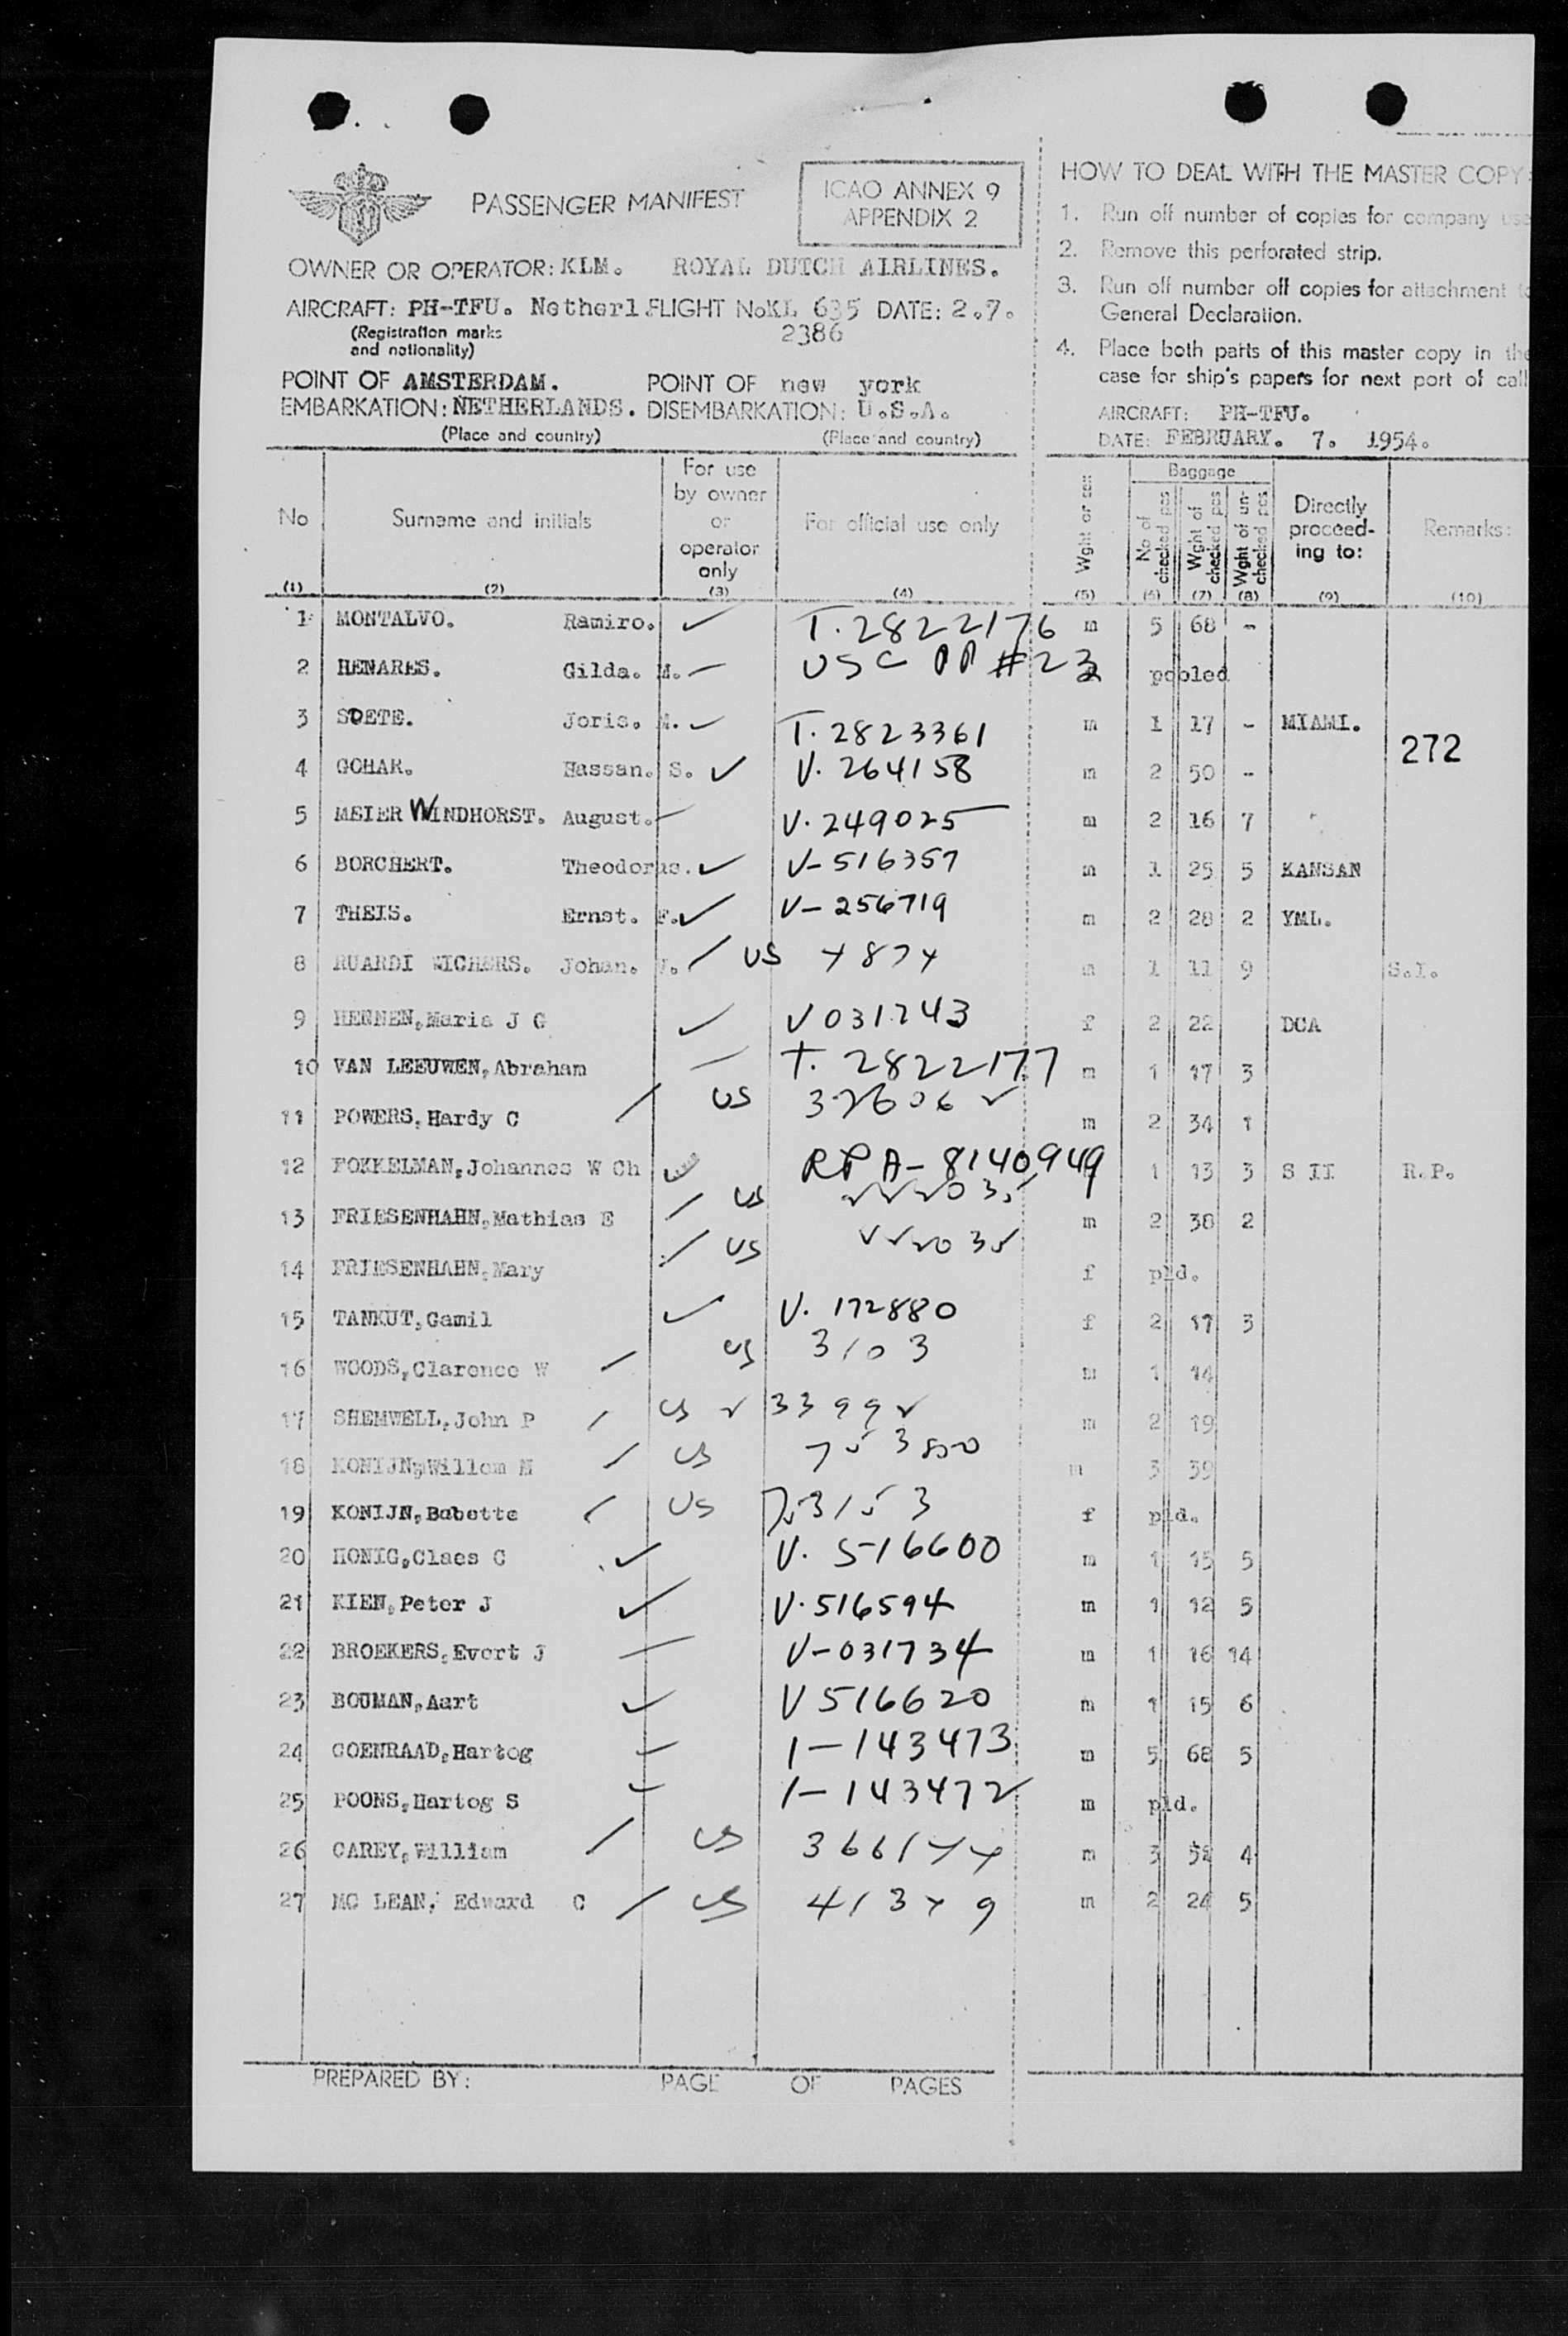 PASSENGER MANIFEST
ICAO ANNEX 9
APPENDIX 2
OWNER OR OPERATOR: KLM. ROYAL DUTCH AIRLINES.
AIRCRAFT: PH-TFU. Netherl. FLIGHT No KL 635 DATE: 2.7.
(Registration marks and nationality) 2386
POINT OF EMBARKATION: AMSTERDAM. NETHERLANDS. POINT OF DISEMBARKATION: new york U.S.A.
(Place and country) (Place and country)
HOW TO DEAL WITH THE MASTER COPY:
1. Run off number of copies for company use
2. Remove this perforated strip.
3. Run off number off copies for attachment to
General Declaration.
4. Place both parts of this master copy in the
case for ship's papers for next port of call
AIRCRAFT: PH-TFU.
DATE: FEBRUARY. 7. 1954.
No Surname and initials For use by owner or operator only For official use only Wght or sex Baggage No of checked pcs Wght of checked pcs Wght of unchecked pcs Directly proceed-ing to: Remarks:
(1) (2) (3) (4) (5) (6) (7) (8) (9) (10)
1 MONTALVO. Ramiro. T. 2822176 m 5 68 -
2 HENARES. Gilda. M. USC PP #23 pooled
3 SOETE. Joris. M. T. 2823361 m 1 17 - MIAMI.
272
4 GOHAR. Hassan. S. V. 264158 m 2 50 -
5 MEIER WINDHORST. August. V. 249025 m 2 16 7
6 BORCHERT. Theodorus. V-516357 m 1 25 5 KANSAN
7 THEIS. Ernst. F. V-256719 m 2 28 2 YML.
8 RUARDI WICHERS. Johan. US m 1 11 9 S.I.
9 HENNEN, Maria J G V031243 f 2 22 DCA
10 VAN LEEUWEN, Abraham T. 2822177 m 1 17 3
11 POWERS, Hardy C US 32606 m 2 34 1
12 FOKKELMAN, Johannes W Ch RP A-8140949 1 13 3 S II R.P.
13 FRIESENHAHN, Mathias E US m 2 38 2
14 FRIESENHAHN, Mary US f pld.
15 TANKUT, Gamil V. 172880 f 2 17 3
16 WOODS, Clarence W US 3103 m 1 14
17 SHEMWELL, John P US m 2 19
18 KONIJN, Willem M US m 3 39
19 KONIJN, Babette US f pld.
20 HONIG, Claes C V. 516600 m 1 15 5
21 KIEN, Peter J V. 516594 m 1 12 5
22 BROEKERS, Evert J V-031734 m 1 16 14
23 BOUMAN, Aart V 516620 m 1 15 6
24 COENRAAD, Hartog 1-143473 m 5 68 5
25 POONS, Hartog S 1-143472 m pld.
26 CAREY, William US m 3 52 4
27 MC LEAN, Edward C US m 2 24 5
PREPARED BY: PAGE OF PAGES